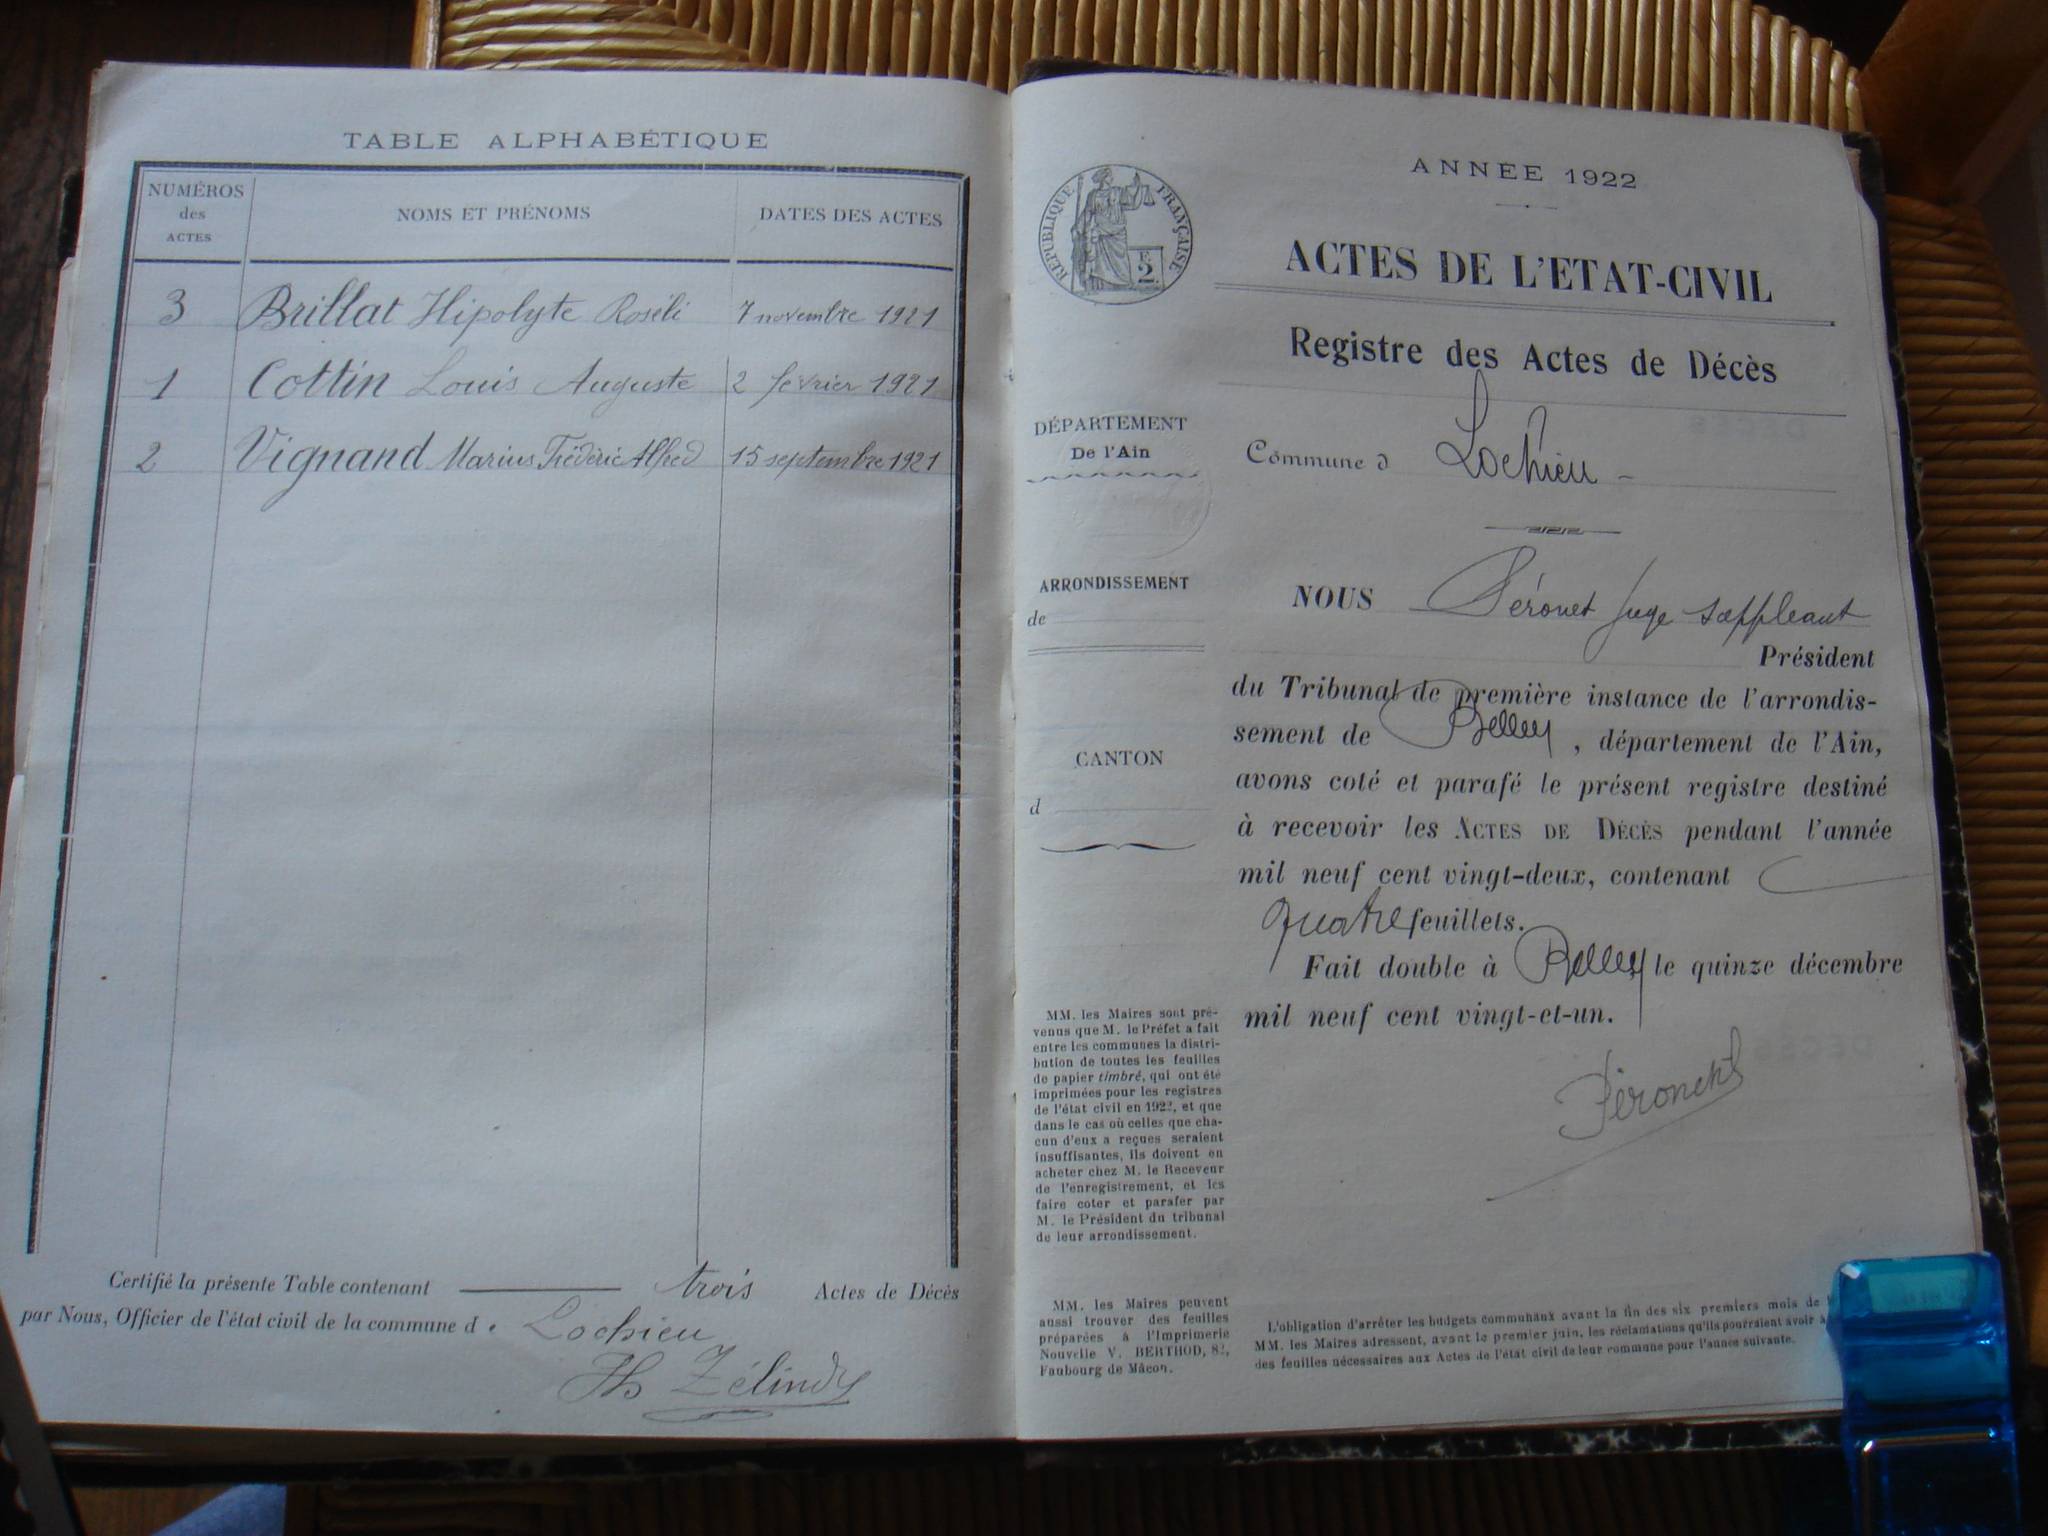 TABLE ALPHABÉTIQUE
NUMÉROS
des
ACTES
NOMS ET PRÉNOMS
DATES DES ACTES
3 Brillat Hipolyte Roséli 7 novembre 1921
1 Cottin Louis Auguste 2 février 1921
2 Vignand Marius Frédéric Alfred 15 septembre 1921
Certifié la présente Table contenant trois Actes de Décès
par Nous, Officier de l'état civil de la commune d Lochieu
Zélindy
ANNÉE 1922
RÉPUBLIQUE FRANÇAISE
2
ACTES DE L'ETAT-CIVIL
Registre des Actes de Décès
DÉPARTEMENT
De l'Ain
Commune d Lochieu
ARRONDISSEMENT
de
NOUS Péronet juge suppléant
Président
du Tribunal de première instance de l'arrondis-
sement de Belley, département de l'Ain,
CANTON
d
avons coté et parafé le présent registre destiné
à recevoir les ACTES DE DÉCÈS pendant l'année
mil neuf cent vingt-deux, contenant
quatre feuillets.
Fait double à Belley le quinze décembre
mil neuf cent vingt-et-un.
MM. les Maires sont pré-
venus que M. le Préfet a fait
entre les communes la distri-
bution de toutes les feuilles
de papier timbré, qui ont été
imprimées pour les registres
de l'état civil en 1922, et que
dans le cas où celles que cha-
cun d'eux a reçues seraient
insuffisantes, ils doivent en
acheter chez M. le Receveur
de l'enregistrement, et les
faire coter et parafer par
M. le Président du tribunal
de leur arrondissement.
MM. les Maires peuvent
aussi trouver des feuilles
préparées à l'Imprimerie
Nouvelle V. BERTHOD, 82,
Faubourg de Mâcon.
L'obligation d'arrêter les budgets communaux avant la fin des six premiers mois de
MM. les Maires adressent, avant le premier juin, les réclamations qu'ils pourraient avoir à
des feuilles nécessaires aux Actes de l'état civil de leur commune pour l'année suivante.